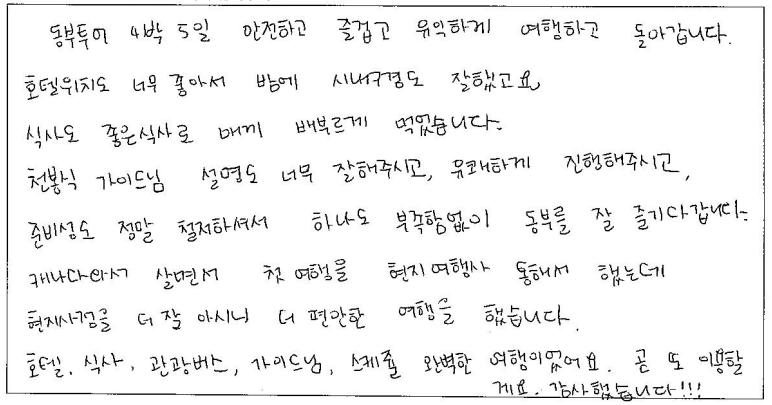 동부투어 4박 5일 안전하고 즐겁고 유익하게 여행하고 돌아갑니다.
호텔위치도 너무 좋아서 밤에 시내구경도 잘했고요
식사도 좋은식사로 매끼 배부르게 먹었습니다.
천봉식 가이드님 설명도 너무 잘해주시고, 유쾌하게 진행해주시고,
준비성도 정말 철저하셔서 하나도 부족함없이 동부를 잘 즐기다갑니다.
캐나다와서 살면서 첫 여행을 현지여행사 통해서 했는데
현지사정을 더 잘 아시니 더 편안한 여행을 했습니다.
호텔, 식사, 관광버스, 가이드님, 스케쥴 완벽한 여행이었어요. 곧 또 이용할
게요. 감사했습니다!!!